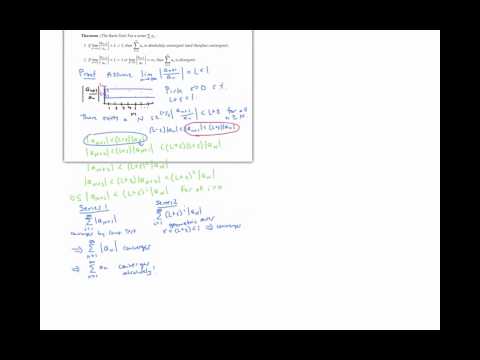 Theorem (The Ratio Test) For a series ∑ aₙ
1. If lim |aₙ₊₁/aₙ| = L < 1, then ∑ aₙ is absolutely convergent (and therefore convergent).
2. If lim |aₙ₊₁/aₙ| = L > 1 or lim |aₙ₊₁/aₙ| = ∞, then ∑ aₙ is divergent.
Proof Assume lim n→∞ |aₙ₊₁/aₙ| = L < 1.
|aₙ₊₁/aₙ|
Pick ε > 0 s.t.
L+ε < 1.
There exists a N s.t. |aₙ₊₁/aₙ| < L+ε for all n ≥ N.
(L-ε)|aₙ| < |aₙ₊₁| < (L+ε)|aₙ|
|a_N+1| < (L+ε)|a_N|
|a_N+2| < (L+ε)|a_N+1| < (L+ε)²|a_N|
|a_N+3| < (L+ε)|a_N+2| < (L+ε)³|a_N|
0 ≤ |a_N+i| < (L+ε)ⁱ|a_N| for all i > 0
Series 1 Series 2
∑ |a_N+i| ∑ (L+ε)ⁱ|a_N|
converges by Comp. Test geometric series
r = (L+ε) < 1 ⇒ converges
⇒ ∑ |aₙ| converges
⇒ ∑ aₙ converges
absolutely!